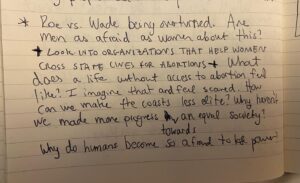 * Roe vs. Wade being overturned. Are
men as afraid as women about this?
* LOOK INTO ORGANIZATIONS THAT HELP WOMEN
CROSS STATE LINES FOR ABORTIONS * What
does a life without access to abortion feel
like? I imagine that and feel scared. How
can we make the coasts less elite? Why haven't
we made more progress towards an equal society?
Why do humans become so afraid to lose power?